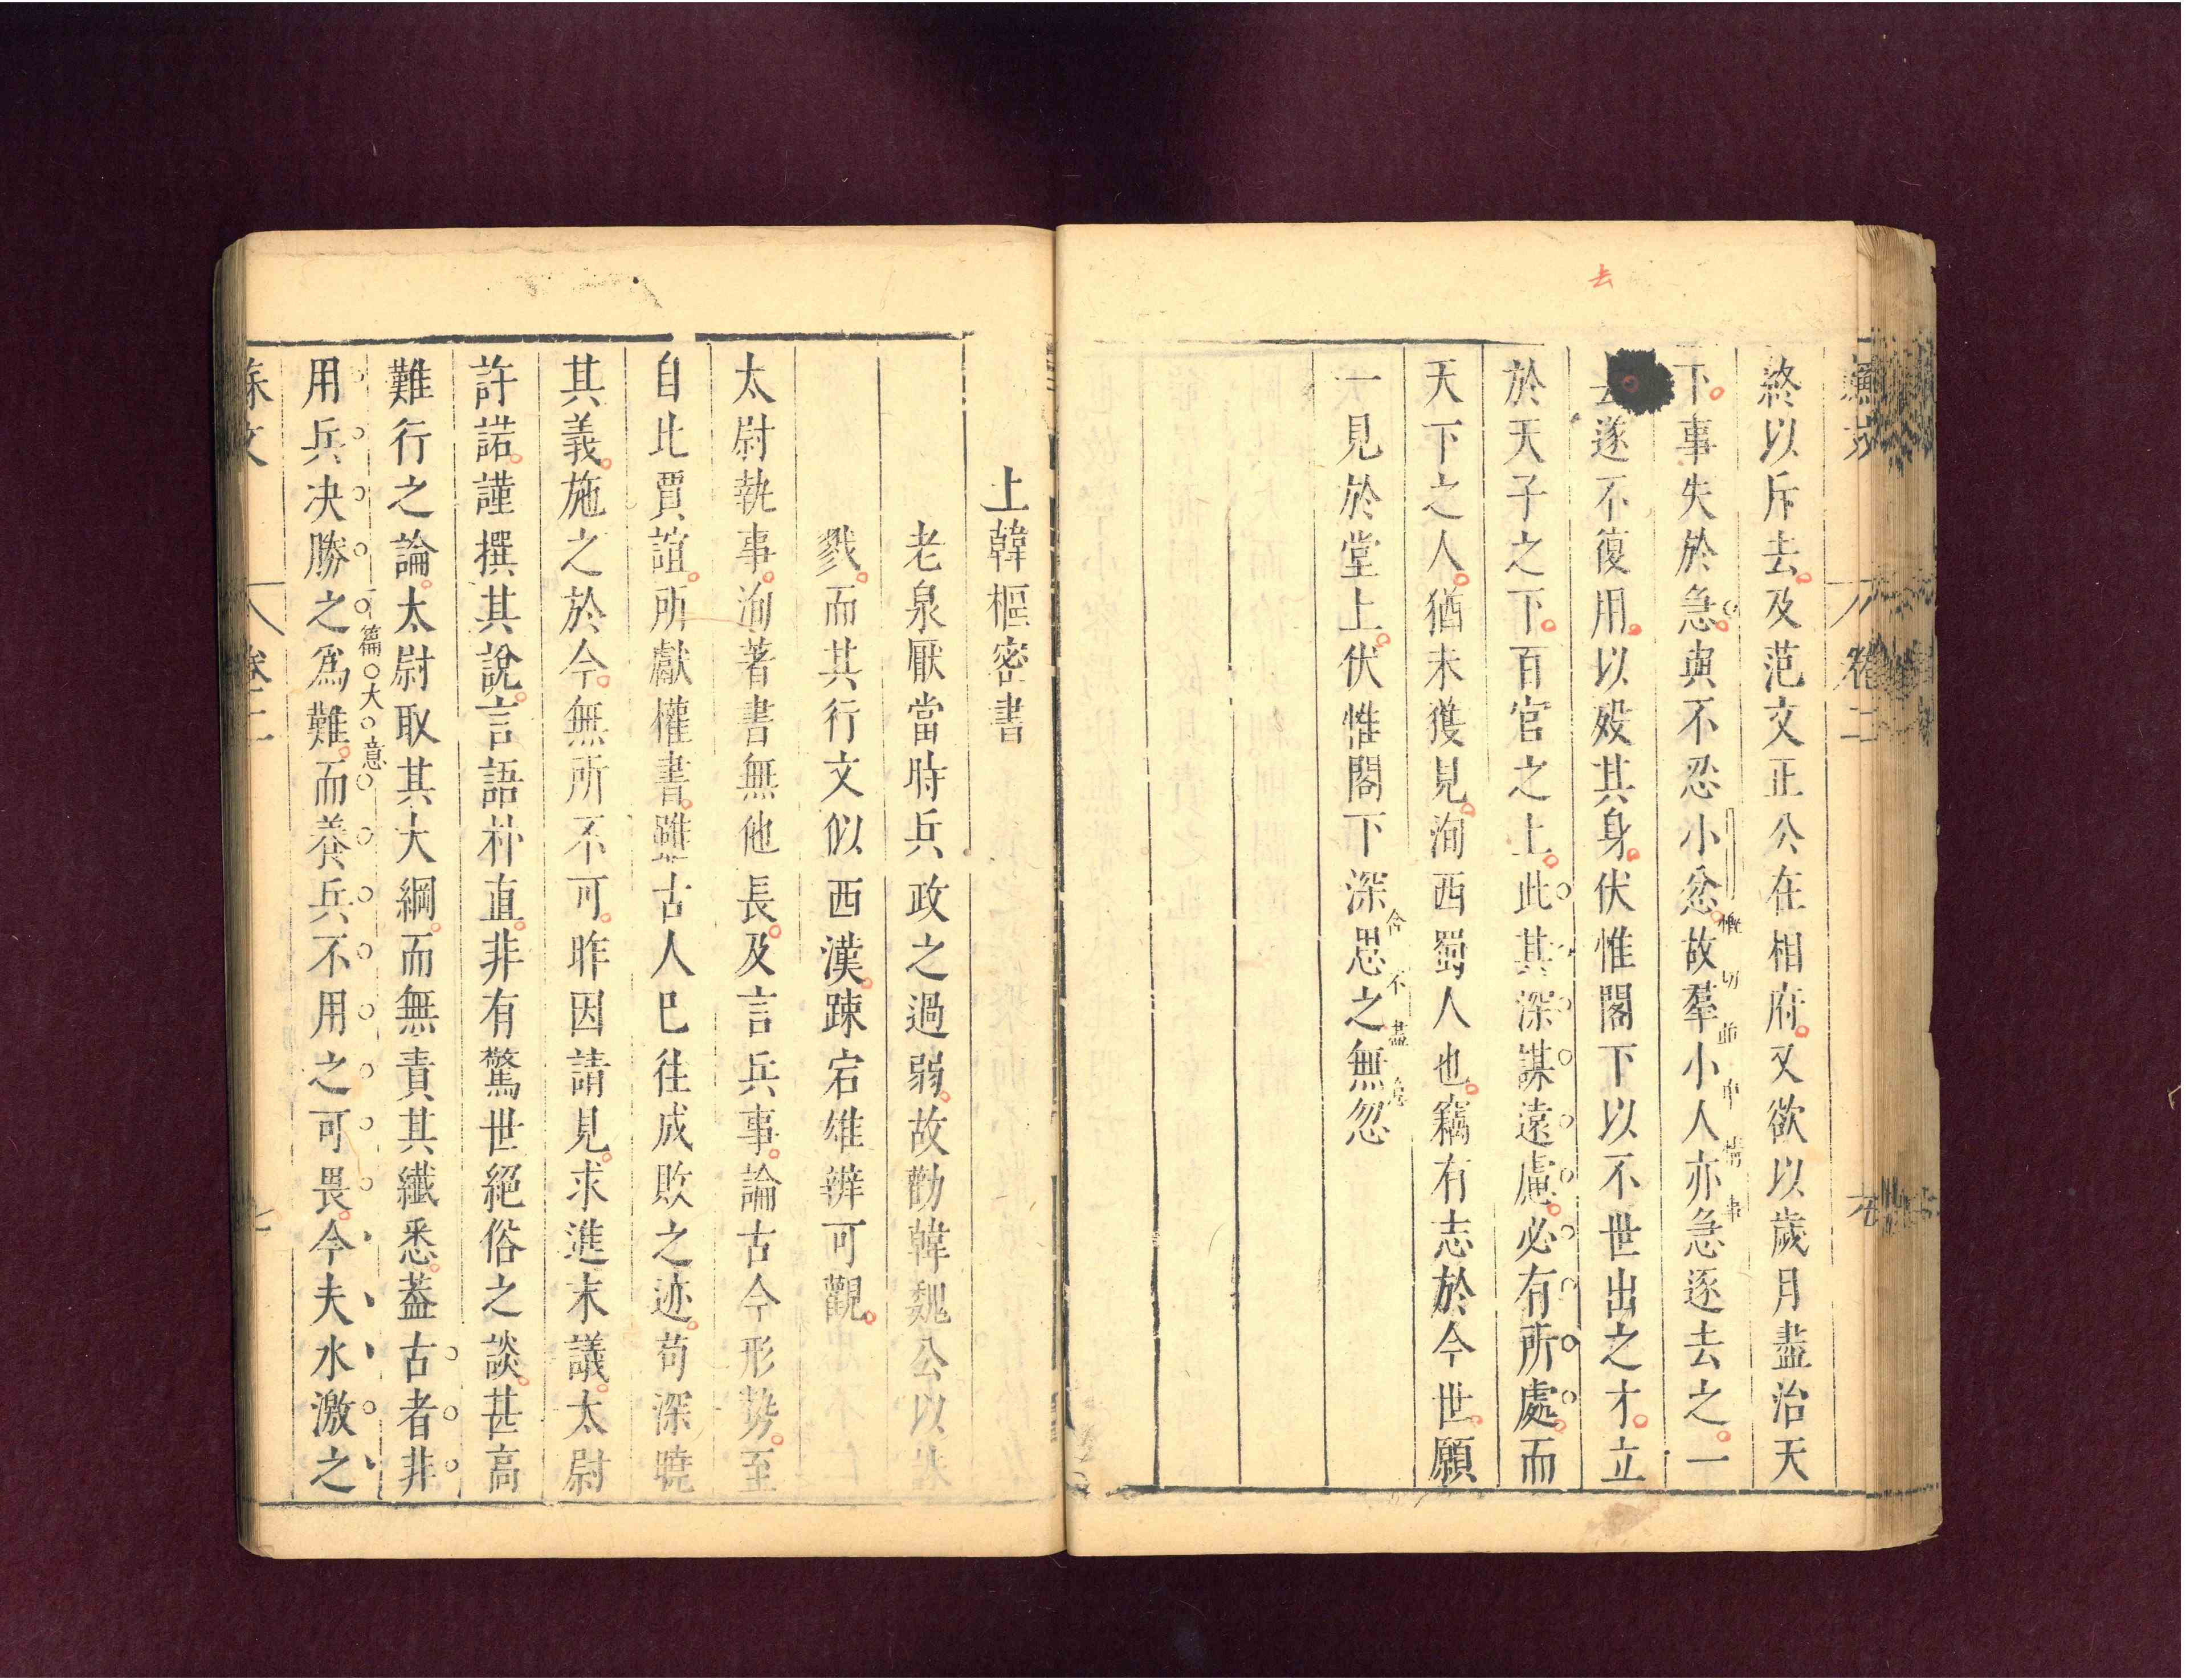 去
終以斥去及范文正公在相府又欲以歲月盡治天
下事失於急與不忍小忿故羣小人亦急逐去之一
慨切前中情事
去遂不復用以歿其身伏惟閣下以不世出之才立
於天子之下百官之上此其深謀遠慮必有所處而
天下之人猶未獲見洵西蜀人也竊有志於今世願
一見於堂上伏惟閣下深思之無忽
含不盡意
上韓樞密書
老泉厭當時兵政之過弱故勸韓魏公以誅
戮而其行文似西漢踈宕雄辨可觀
太尉執事洵著書無他長及言兵事論古今形势至
自比賈誼所獻權書雖古人巳往成敗之迹苟深曉
其義施之於今無所不可昨因請見求進末議太尉
許諾謹撰其說言語朴直非有驚世絕俗之談甚高
難行之論太尉取其大綱而無責其纖悉葢古者非
一篇大意
用兵决勝之爲難而養兵不用之可畏今夫水激之
蘇文 卷二 七